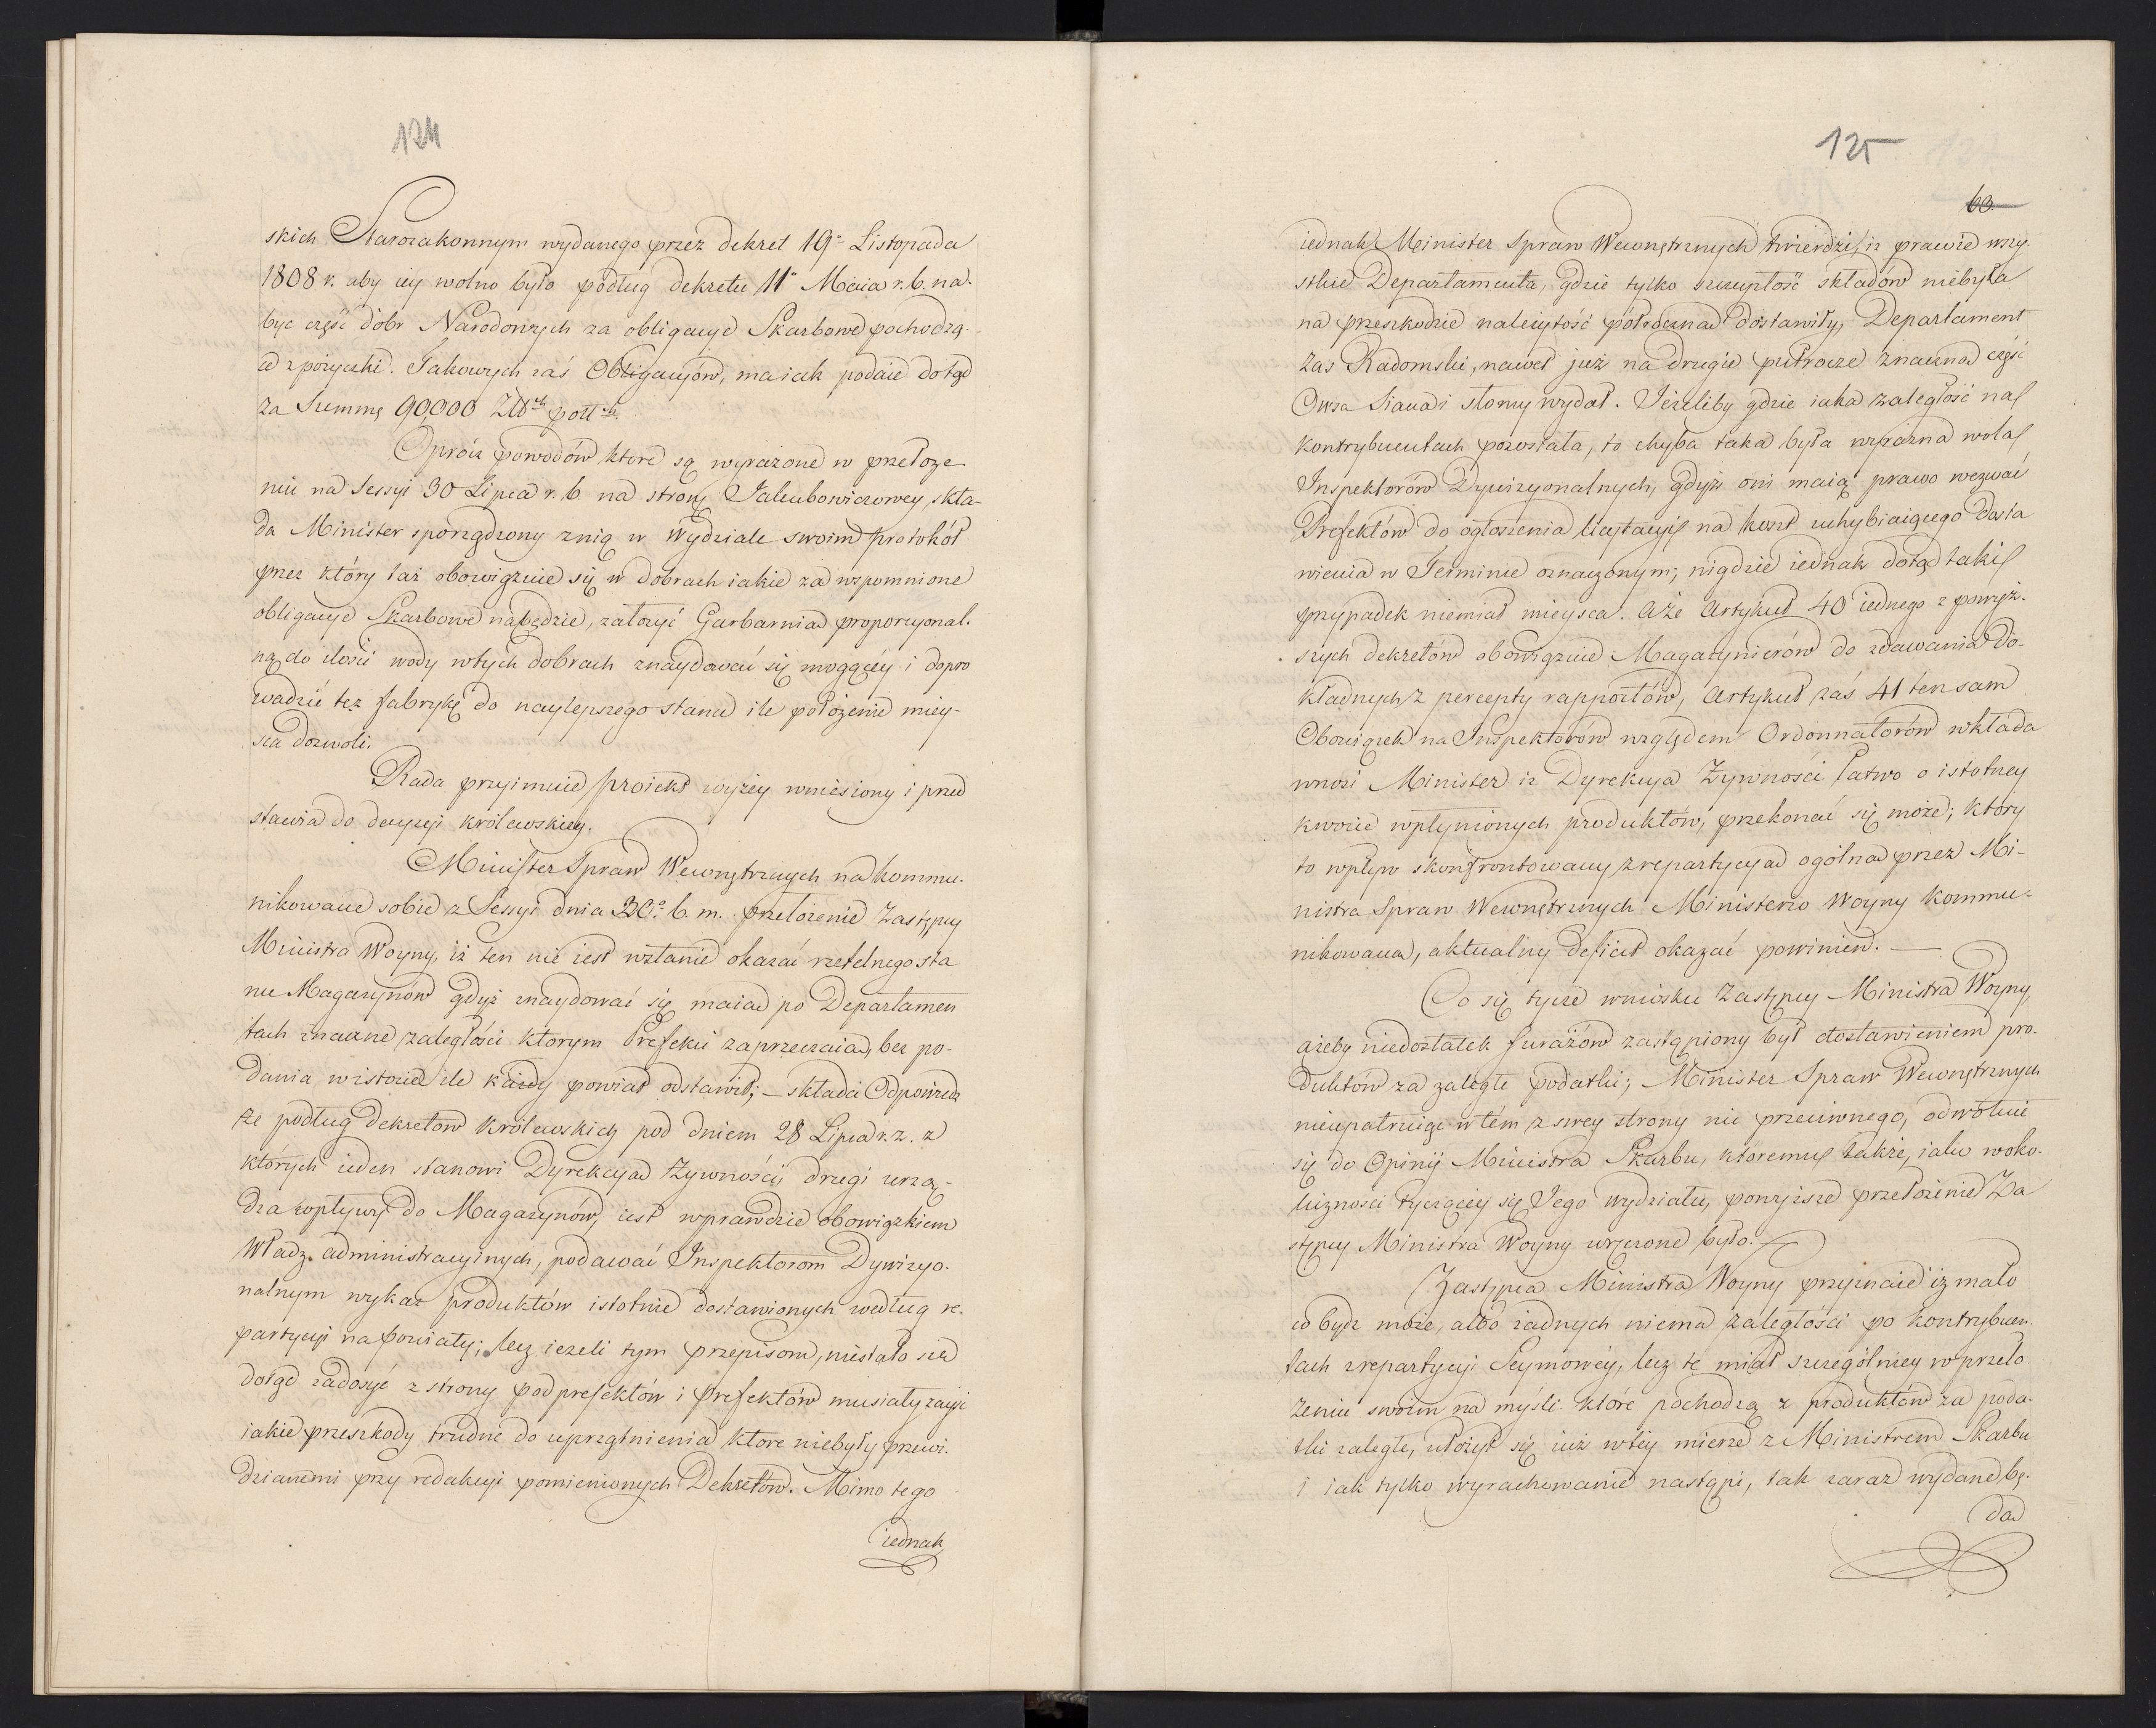 124
skich Starozakonnym wydanego przez dekret 19º Listopada
1808 r. aby iey wolno było podług dekretu 11º Maia r. b. na-
być część dóbr Narodowych za obligacye Skarbowe pochodzą-
ce z pożyczki. Jakowych zaś Obligacyów, ma iak podaie dotąd
za Summę 90000 Złł^ch poll^ch.
Oprócz powodów które są wyrażone w przełoże
niu na Sessyi 30 Lipca r. b. na stronę Jakubowiczowey, skła-
da Minister sporządzony z nią w Wydziale swoim protokół
przez który taż obowięzuie się w dobrach iakie za wspomnione
obligacye Skarbowe nabędzie, założyć Garbarnia proporcyonal-
ną do ilości wody w tych dobrach znaydować się mogącey i dopro
wadzić też fabrykę do naylepszego stanu ile położenie miey-
sca dozwoli.
Rada przyimuie proiekt wyżey wniesiony i przed
stawia do decyzyi królewskiey.
Minister Spraw Wewnętrznych na kommu-
nikowane sobie z Sessyi dnia 30º b. m. przełożenie Zastępcy
Ministra Woyny, iż ten nie iest wstanie okazać rzetelnego sta
nu Magazynów gdyż znaydować się maią po Departamen
tach znaczne zaległości którym Prefekci zaprzeczaią, bez po-
dania wistocie ile każdy powiat odstawił; – składa Odpowiedź
że podług dekretów Królewskich pod dniem 28 Lipca r. z. z
których ieden stanowi Dyrekcyą Żywności, drugi urzą-
dza wpływy do Magazynów, iest wprawdzie obowiązkiem
Władz administracyinych, podawać Inspektorom Dywizyo-
nalnym wykaz produktów istotnie dostawionych według re-
partycyi na powiaty; lecz ieżeli tym przepisom, niestało się
dotąd zadosyć z strony podprefektów i Prefektów musiały zayść
iakie przeszkody trudne do uprzątnienia które niebyły przewi-
dzianemi przy redakcyi pomienionych Dekretów. Mimo tego
iednak
125
63
iednak Minister Spraw Wewnętrznych twierdzi, iż prawie wszy-
stkie Departamenta, gdzie tylko szczupłość składów niebyła
na przeszkodzie należytość półroczną dostawiły, Departament
zaś Radomski, nawet już na drugie półrocze znaczną część
Owsa Siana i słomy wydał. Jeżeliby gdzie iaka zaległość na
kontrybuentach pozostała, to chyba taka była wyraźna wola
Inspektorów Dywizyonalnych, gdyż oni maią prawo wezwać
Prefektów do ogłoszenia licytacyi na koszt uchybiaiącego dosta
wienia w Terminie oznaczonym; nigdzie iednak dotąd taki
przypadek niemiał mieysca. Aże Artykuł 40 iednego z powyż-
szych dekretów obowięzuie Magazynierów do zdawania do-
kładnych z percepty rapportów, Artykuł zaś 41 ten sam
Obowiązek na Inspektorów względem Ordonnatorów wkłada
wnosi Minister iż Dyrekcya Żywności łatwo o istotney
kwocie wpłynionych produktów, przekonać się może; który
to wpływ skonfrontowany z repartycyą ogólną przez Mi-
nistra Spraw Wewnętrznych Ministerio Woyny kommu-
nikowaną, aktualny deficit okazać powinien. —
Co się tycze wniosku Zastępcy Ministra Woyny,
ażeby niedostatek furażów zastąpiony był dostawieniem pro-
duktów za zaległe podatki; Minister Spraw Wewnętrznych
nieupatruiąc w tém z swey strony nic przeciwnego, odwołuie
się do Opinij Ministra Skarbu, któremu także, iako w oko-
liczności tyczącey się Jego wydziału, powyższe przełożenie Za
stępcy Ministra Woyny udzielone było.
Zastępca Ministra Woyny przyznaie iż mało
co bydz może, albo żadnych niema zaległości po kontrybuen-
tach z repartycyi Seymowéy, lecz te miał szczególniey w przeło
żeniu swoim na myśli które pochodzą z produktów za poda-
tki zaległe, ułożył się iuż w téy mierze z Ministrem Skarbu
i iak tylko wyrachowanie nastąpi, tak zaraz wydane bę-
dą